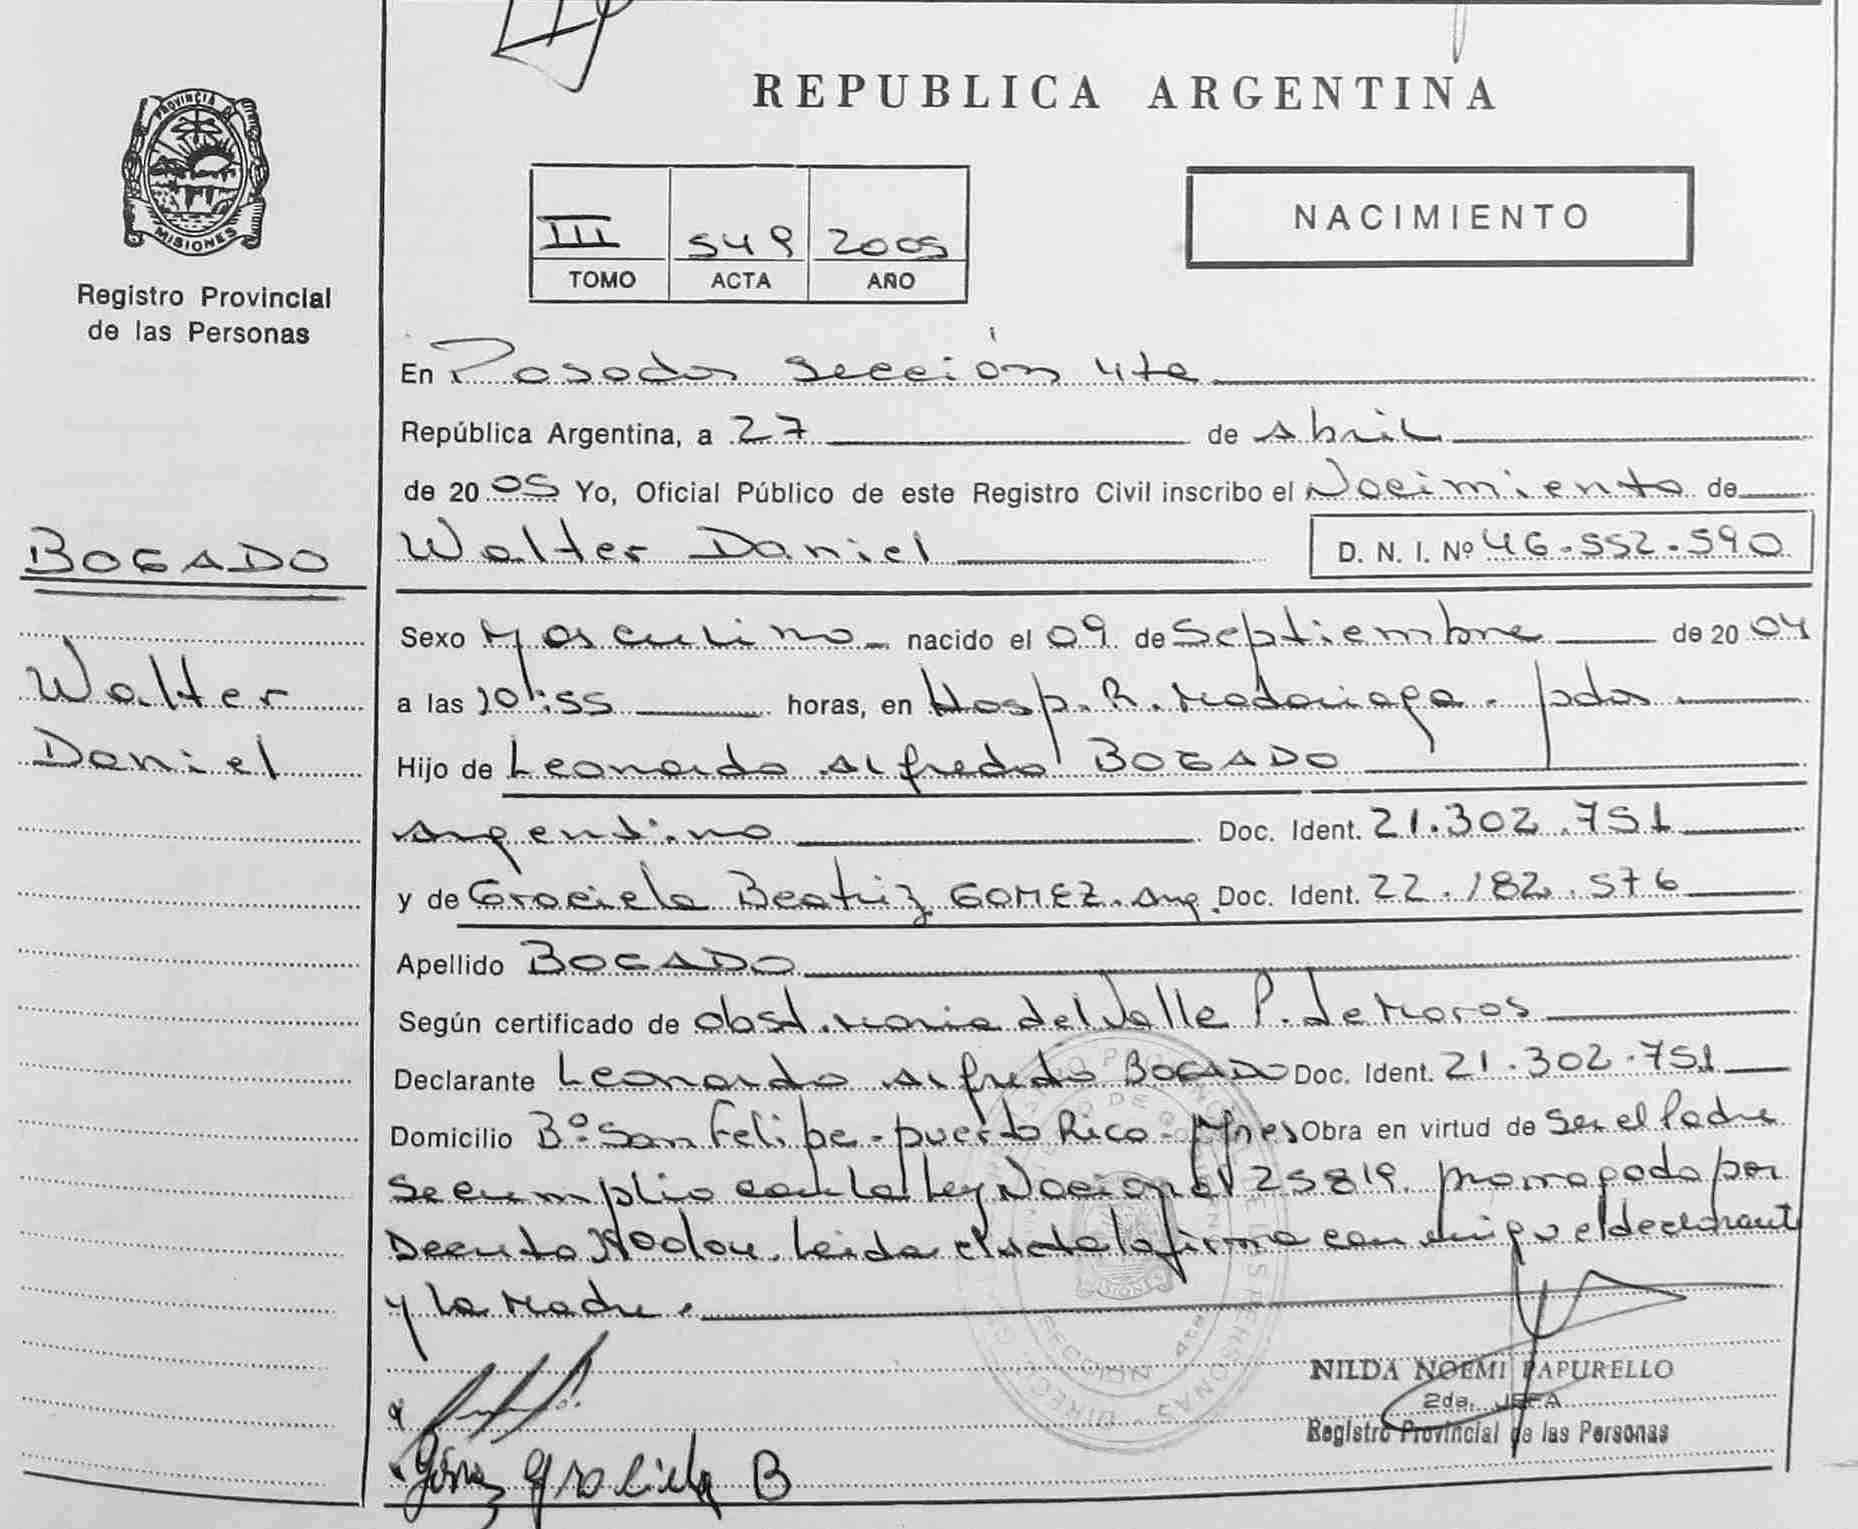 REPUBLICA ARGENTINA
PROVINCIA DE
MISIONES
Registro Provincial
de las Personas
III 549 2005
TOMO ACTA AÑO
NACIMIENTO
En Posadas Sección 4ta
República Argentina, a 27 de Abril
de 2005 Yo, Oficial Público de este Registro Civil inscribo el Nacimiento de
BOGADO
Walter Daniel D. N. I. Nº 46.552.590
Sexo Masculino nacido el 09 de Septiembre de 2004
Walter
Daniel
a las 10:55 horas, en Hosp. R. Madariaga - pdas
Hijo de Leonardo Alfredo BOGADO
Argentino Doc. Ident. 21.302.751
y de Graciela Beatriz GOMEZ. Arg. Doc. Ident. 22.182.576
Apellido BOGADO
Según certificado de obst. Maria del Valle P. de Moros
Declarante Leonardo Alfredo BOGADO Doc. Ident. 21.302.751
Domicilio Bº San Felipe - puerto Rico - Mnes Obra en virtud de Ser el Padre
Se cumplio con la Ley Nacional 25819. prorrogado por
Decreto Leida el acta la firma con migo el declarant
y la Madre.
NILDA NOEMI PAPURELLO
2da. JEFA
Registro Provincial de las Personas
Gómez Graciela B